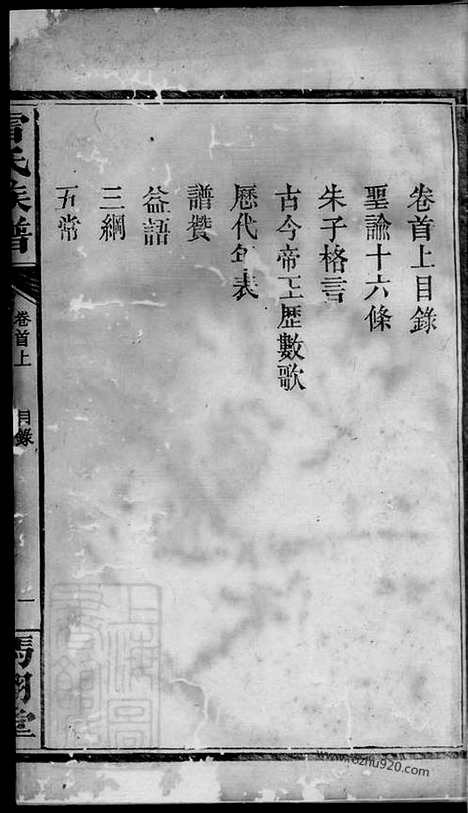 卷首上目錄
聖諭十六條
朱子格言
古今帝王歷數歌
歷代年表
譜贊
益語
三綱
五常
氏族譜
卷首上
目錄
一
堂
www.dzhu920.com